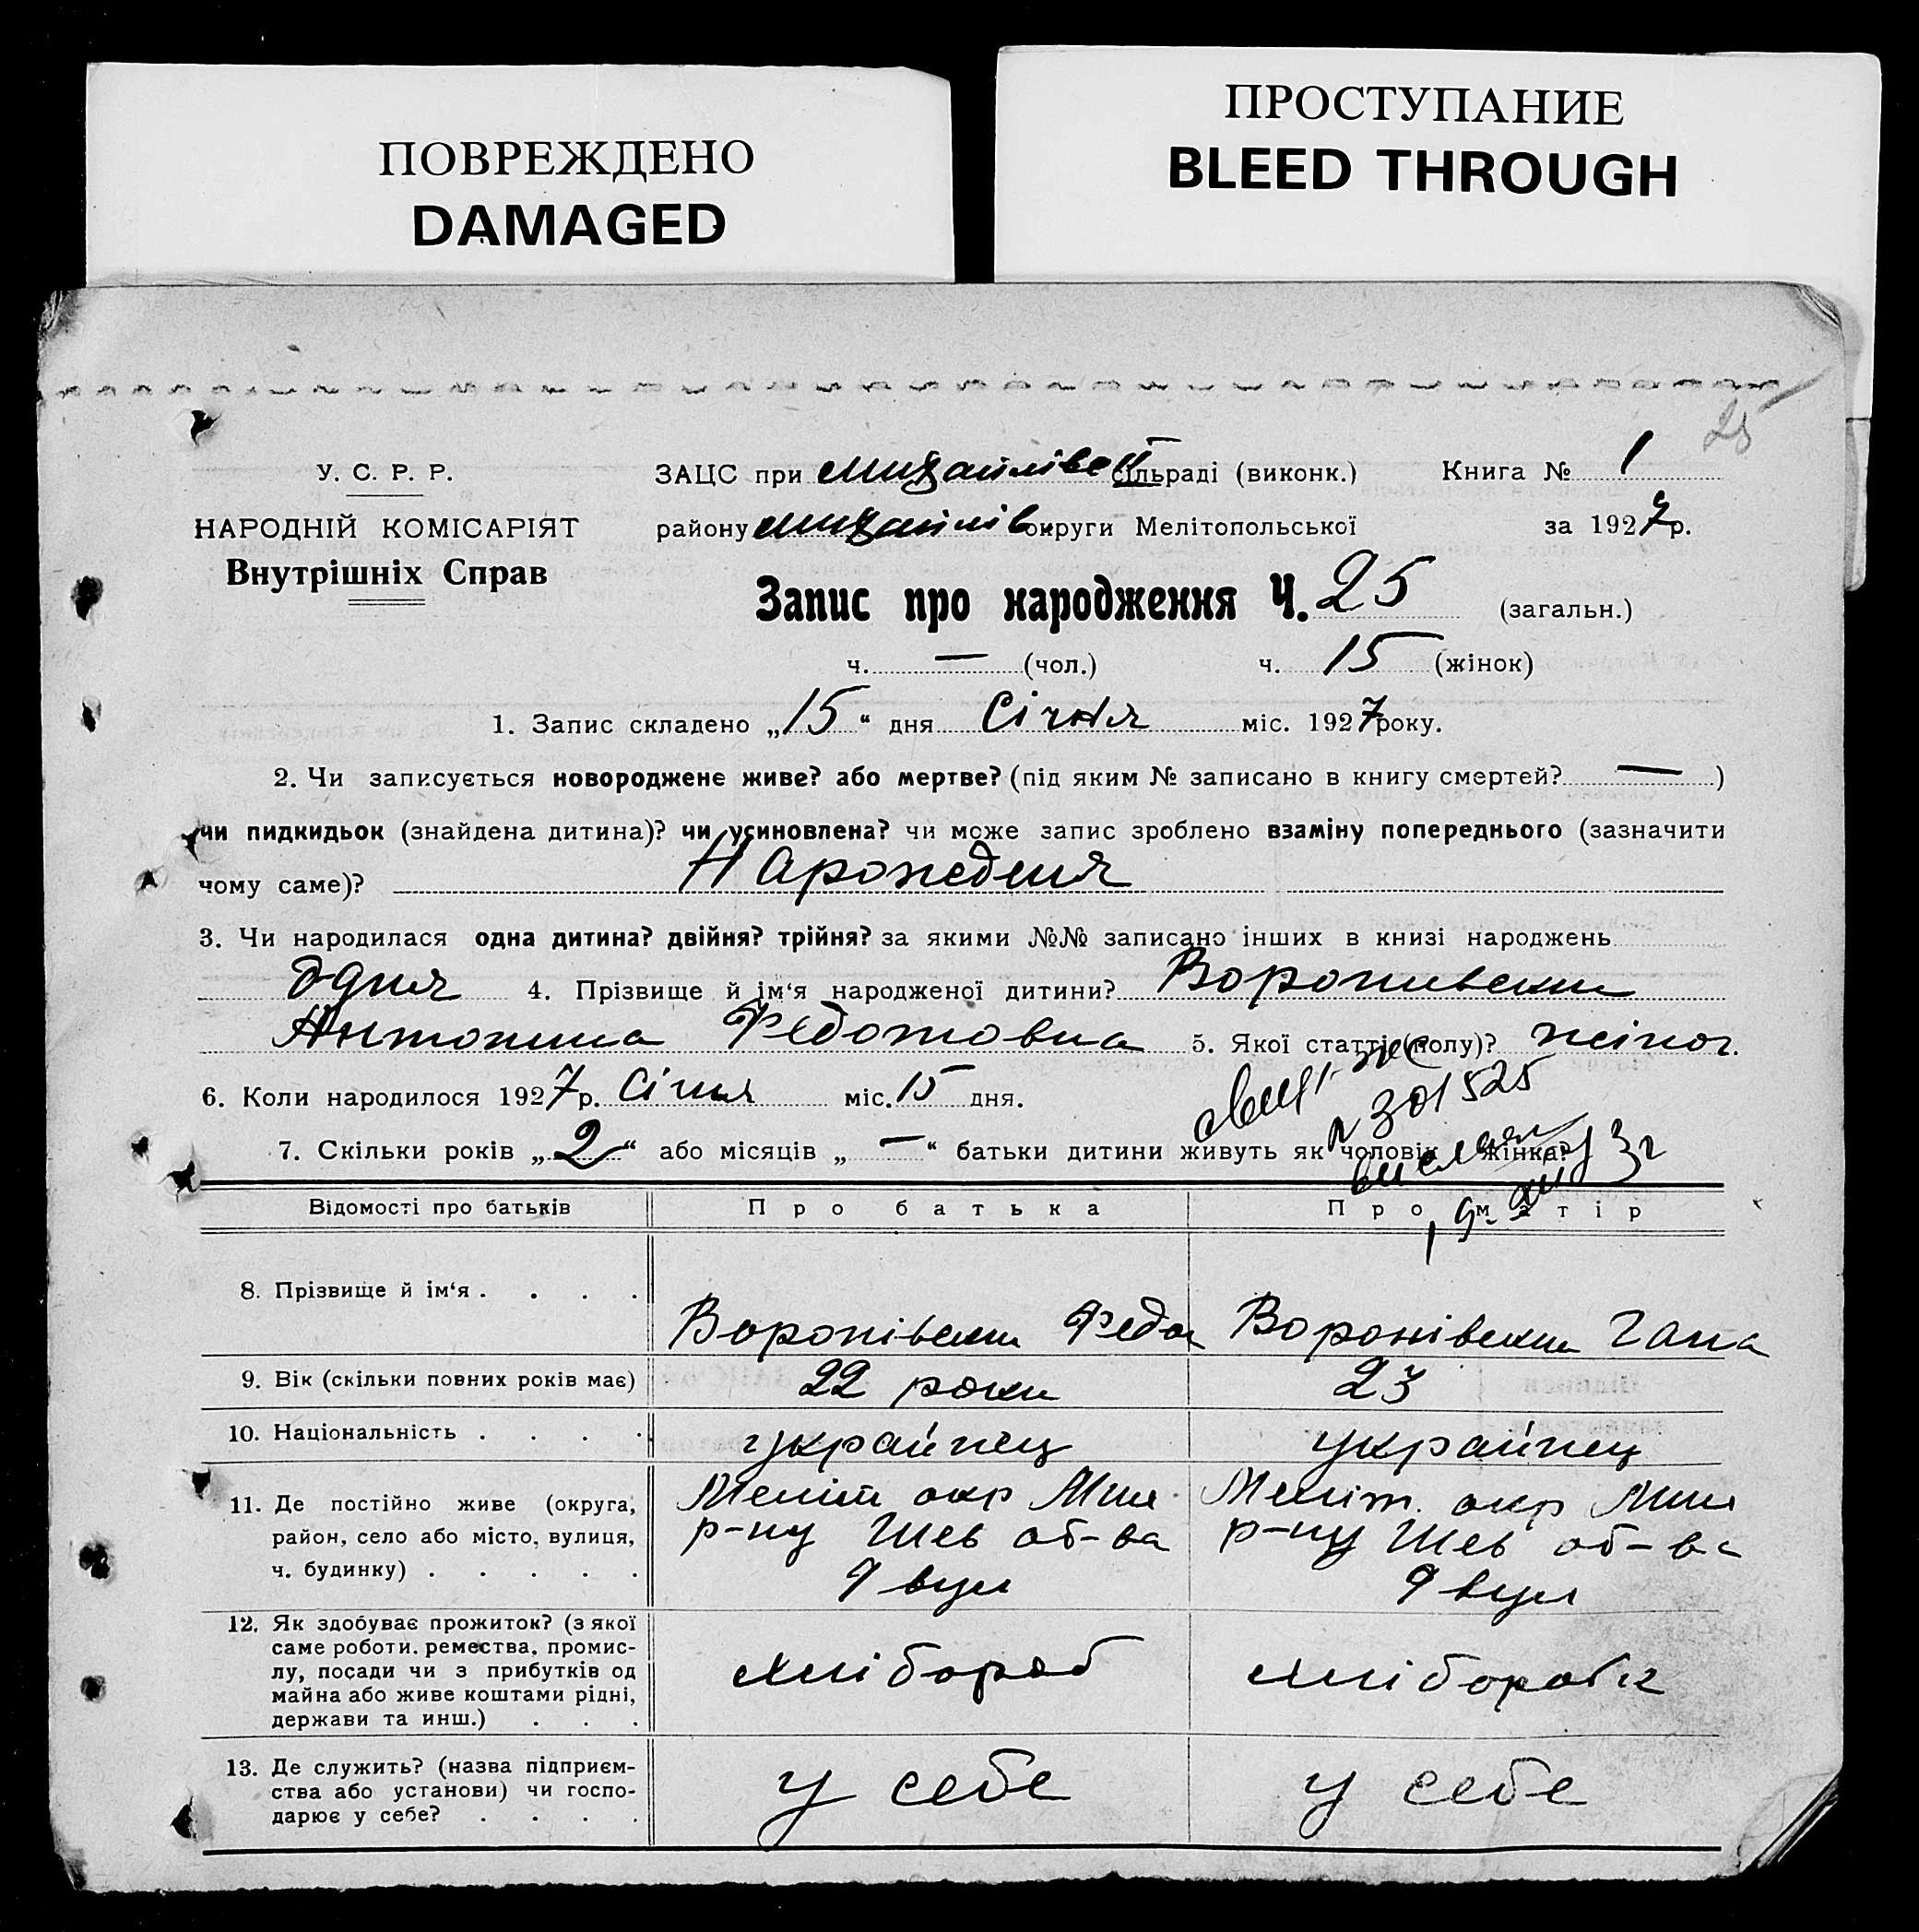 ПОВРЕЖДЕНО
DAMAGED
ПРОСТУПАНИЕ
BLEED THROUGH
25
У. С. Р. Р.
НАРОДНІЙ КОМІСАРІЯТ
Внутрішніх Справ
ЗАЦС при Михайлівс сільраді (виконк.) Книга № 1
району Михайлів округи Мелітопольської за 1927 р.
Запис про народження Ч. 25 (загальн.)
ч. — (чол.) ч. 15 (жінок)
1. Запис складено „15“ дня Січня міс. 1927 року.
2. Чи записується новороджене живе? або мертве? (під яким № записано в книгу смертей? — )
чи пидкидьок (знайдена дитина)? чи усиновлена? чи може запис зроблено взаміну попереднього (зазначити
чому саме)? Нарождения
3. Чи народилася одна дитина? двійня? трійня? за якими №№ записано інших в книзі народжень
одна 4. Прізвище й ім‘я народженої дитини?
Антонина Федотовна 5. Якої статті (полу)? жіноч.
6. Коли народилося 1927 р. Січня міс. 15 дня.
№ 301525
7. Скільки років „2“ або місяців „—“ батьки дитини живуть як чоловік жінка?
Відомості про батьків Про батька Про матір
8. Прізвище й ім‘я . . . . Воронівски Федот Воронівски Гана
9. Вік (скільки повних років має) 22 роки 23
10. Національність . . . . українец українец
11. Де постійно живе (округа, Меліт окр Мих Меліт. окр Мих
район, село або місто, вулиця, р-ну Шев об-ва р-ну Шев об-ва
ч. будинку) . . . . . 9 вул 9 вул
12. Як здобуває прожиток? (з якої
саме роботи, ремества, промис-
лу, посади чи з прибутків од хлібороб хлібороб
майна або живе коштами рідні,
держави та инш.) . . .
13. Де служить? (назва підприєм-
ства або установи) чи госпо- у себе у себе
дарює у себе? . . . .